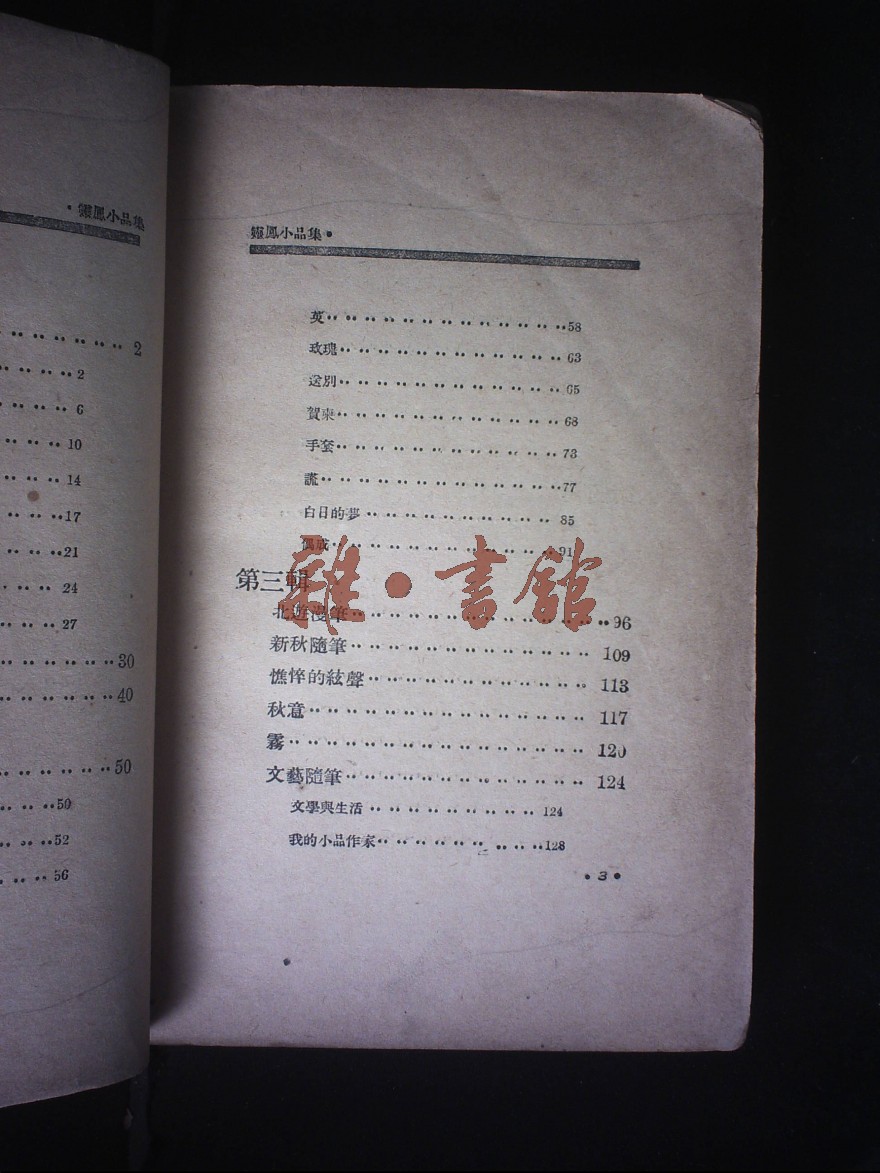 • 靈鳳小品集
2
2
6
10
14
17
21
24
27
30
40
50
50
52
56
靈鳳小品集 •
英 58
玫瑰 63
送別 65
賀柬 68
手套 73
謊 77
白日的夢 85
偶成 91
第三輯
北遊漫筆 96
新秋隨筆 109
憔悴的絃聲 113
秋意 117
霧 120
文藝隨筆 124
文學與生活 124
我的小品作家 128
• 3 •
雜•書館